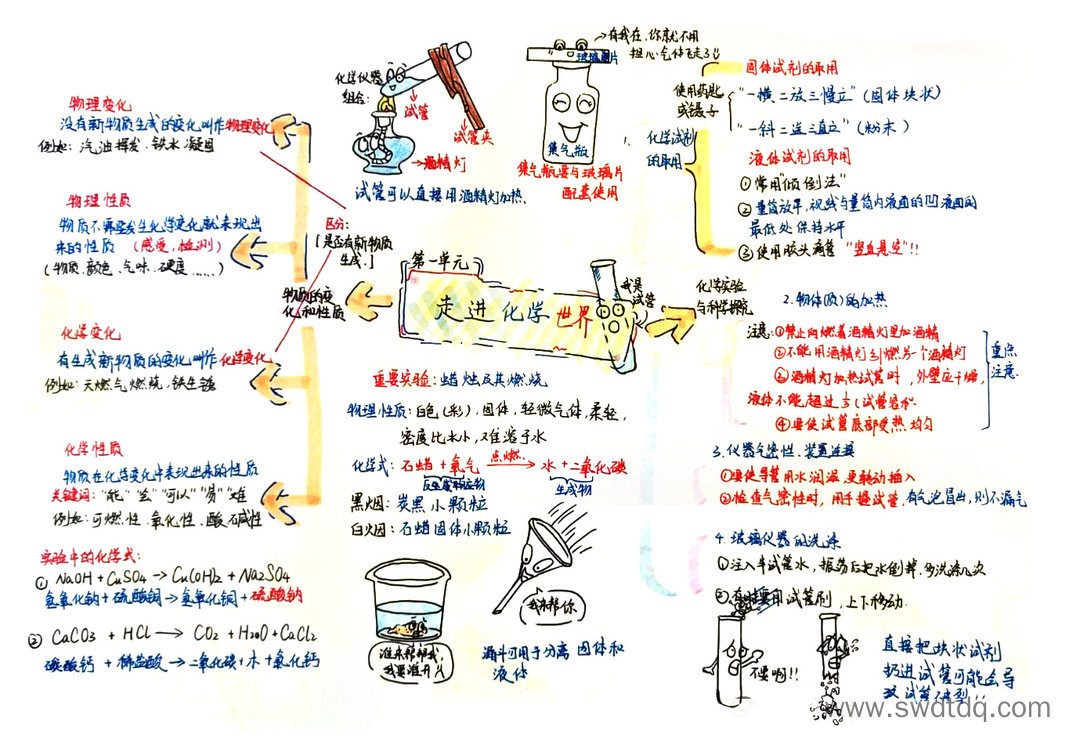 第一单元
走进化学世界
我是
试管
物质的变
化和性质
区分:
[是否有新物质
生成.]
物理变化
没有新物质生成的变化叫作物理变化
例如: 汽油挥发. 铁水凝固
物理性质
物质不需要发生化学变化就表现出
来的性质 (感受, 检测)
(物质. 颜色. 气味. 硬度......)
化学变化
有生成新物质的变化叫作化学变化
例如: 天燃气燃烧, 铁生锈
化学性质
物质在化学变化中表现出来的性质
关键词: "能" "会" "可以" "易" "难"
例如: 可燃性. 氧化性. 酸碱性
实验中的化学式:
① NaOH + CuSO4 → Cu(OH)2 + Na2SO4
氢氧化钠 + 硫酸铜 → 氢氧化铜 + 硫酸钠
② CaCO3 + HCl → CO2 + H2O + CaCl2
碳酸钙 + 稀盐酸 → 二氧化碳 + 水 + 氯化钙
化学仪器
组合:
试管
试管夹
酒精灯
试管可以直接用酒精灯加热.
有我在, 你就不用
担心气体飞走了!!
玻璃片
集气瓶
集气瓶要与玻璃片
配套使用
重要实验: 蜡烛及其燃烧
物理性质: 白色(形), 固体, 轻微气体, 柔轻,
密度比水小, 难溶于水
化学式: 石蜡 + 氧气 点燃 → 水 + 二氧化碳
生成物
黑烟: 炭黑小颗粒
白烟: 石蜡固体小颗粒
谁来帮帮我,
我来帮你
漏斗可用于分离 固体和
液体
化学实验
与科学探究
1.
化学试剂
的取用
使用药匙
或镊子
固体试剂的取用
"一横二放三慢立" (固体块状)
"一斜二送三直立" (粉末)
液体试剂的取用
① 常用"倾倒法"
② 量筒放平, 视线与量筒内液面的凹液面的
最低处保持水平
③ 使用胶头滴管 "竖直悬空"!!
2. 物体(质)的加热
注意: ①禁止向燃着酒精灯里加酒精
②不能用酒精灯引燃另一个酒精灯
③酒精灯加热试管时, 外壁应干燥,
液体不能超过1/3(试管容积
④要使试管底部受热均匀
重点
注意.
3. 仪器气密性、装置连接
①要使导管用水润湿, 更转动插入
②检查气密性时, 用手握试管, 有气泡冒出, 则不漏气
4. 玻璃仪器的洗涤
①注入半试管水, 振荡后把水倒掉. 多洗涤几次
试管刷, 上下移动.
不要啊!!
直接把块状试剂
扔进试管可能会导
致试管破裂!!
www.swdtdq.com